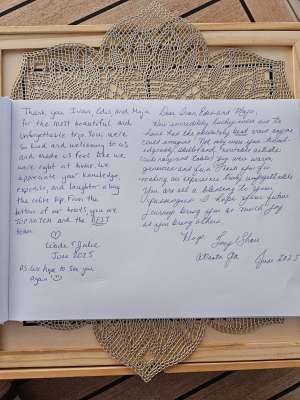 Thank you Ivan, Edis and Maja
for the most beautiful and
unforgettable trip. You were
so kind and welcoming to us
and made us feel like we
were right at home. We
appreciate your knowledge,
expertise, and laughter along
the entire trip. From the
bottom of our hearts, you are
TOP NOTCH and the BEST
team.
Wade & Julie
June 2025
PS We hope to see you
again
Dear Ivan, Edis and Maja,
You incredibly lucky ones are to
have had the absolutely best crew anyone
could imagine. Not only were you
and
only
genuine and fun. Thank you for
making an experience truly unforgettable
You are all a blessing to your
passengers. I hope your future
journeys bring you as much joy
as you bring others.
Hugs
Atlanta Ga June 2025